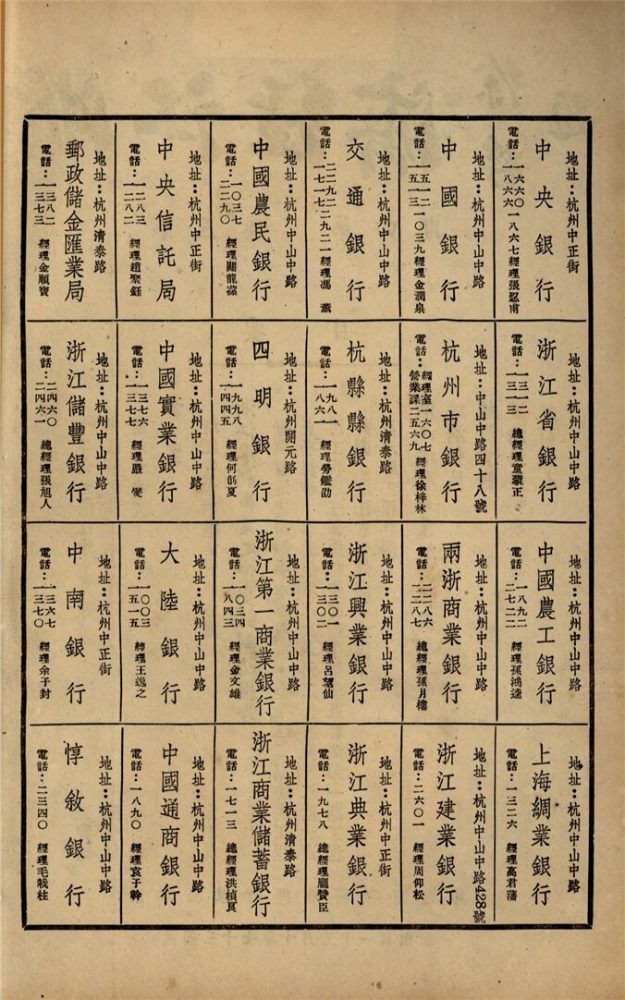 地址：杭州中正街
中央銀行
電話：一六六〇 一八六六 一八六七 經理張忍甫
地址：杭州中山中路
中國銀行
電話：一五一二 一五一三 一〇三九 經理金潤泉
地址：杭州中山中路
交通銀行
電話：二二九二 一七一七 二九二一 經理馮薰
地址：杭州中山中路
中國農民銀行
電話：一〇三七 二二九〇 經理關龍蓀
地址：杭州中正街
中央信託局
電話：一二八三 一二八二 經理趙聚鈺
地址：杭州清泰路
郵政儲金匯業局
電話：一三八二 一三七三 經理金順寶
地址：杭州中山中路
浙江省銀行
電話：一三一二 一三一三 總經理童蒙正
地址：中山中路四十八號
杭州市銀行
電話：經理室一六〇七 營業課二五六九 經理徐梓林
地址：杭州清泰路
杭縣縣銀行
電話：一九八一 一八六一 經理勞鑑劭
地址：杭州開元路
四明銀行
電話：一九九八 二四四五 經理何創夏
地址：杭州中山中路
中國實業銀行
電話：一三七六 一三七七 經理嚴燮
地址：杭州中山中路
浙江儲豐銀行
電話：二四六〇 二四六一 總經理張旭人
地址：杭州中山中路
中國農工銀行
電話：一八九二 二七二二 經理孫鴻逵
地址：杭州中山中路
兩浙商業銀行
電話：二二八六 二二八七 總經理孫月樓
地址：杭州中山中路
浙江興業銀行
電話：一三〇一 一三〇二 經理呂望仙
地址：杭州中山中路
浙江第一商業銀行
電話：一〇三四 一八四三 經理金文雄
地址：杭州中山中路
大陸銀行
電話：一〇〇三 一五一五 經理王逸之
地址：杭州中正街
中南銀行
電話：一三六七 一三七〇 經理余予封
地址：杭州中山中路
上海綢業銀行
電話：一三二六 經理高君藩
地址：杭州中山中路428號
浙江建業銀行
電話：二六〇一 經理周仰松
地址：杭州中正街
浙江典業銀行
電話：一九七八 總經理龐贊臣
地址：杭州清泰路
浙江商業儲蓄銀行
電話：一七一三 總經理洪楨良
地址：杭州中山中路
中國通商銀行
電話：一八九〇 經理袁子幹
地址：杭州中山中路
惇敘銀行
電話：二三四〇 經理毛戟桂